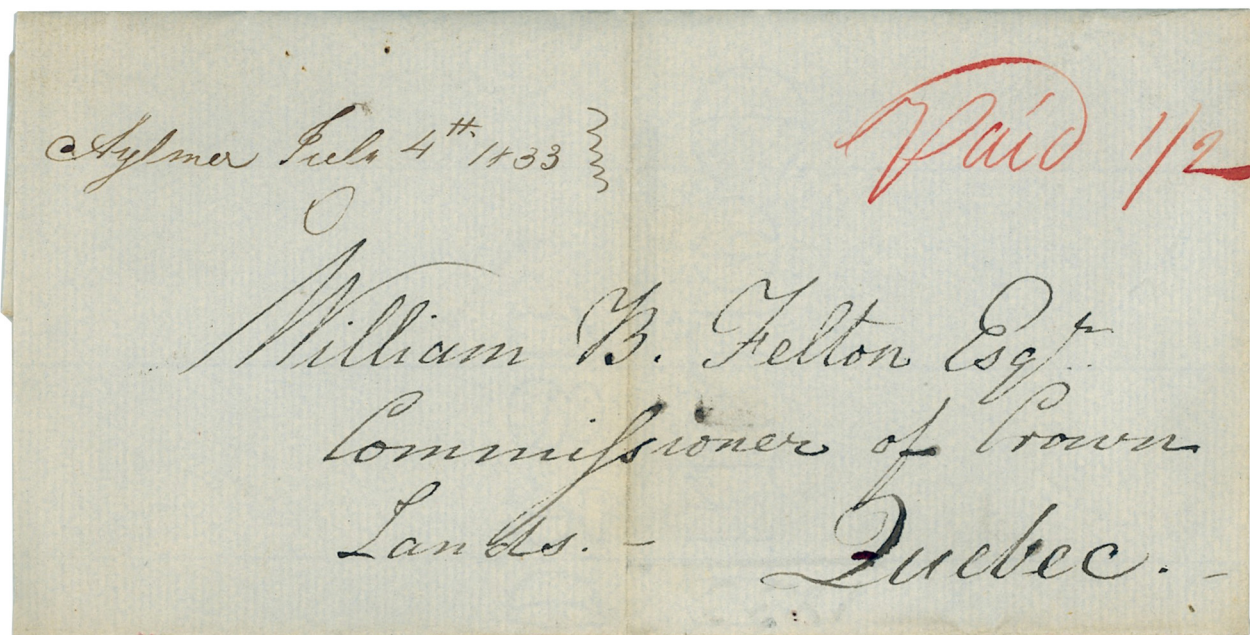 Aylmer July 4th 1833
Paid 1/2
William B. Felton Esqr.
Commissioner of Crown
Lands. –
Quebec. –